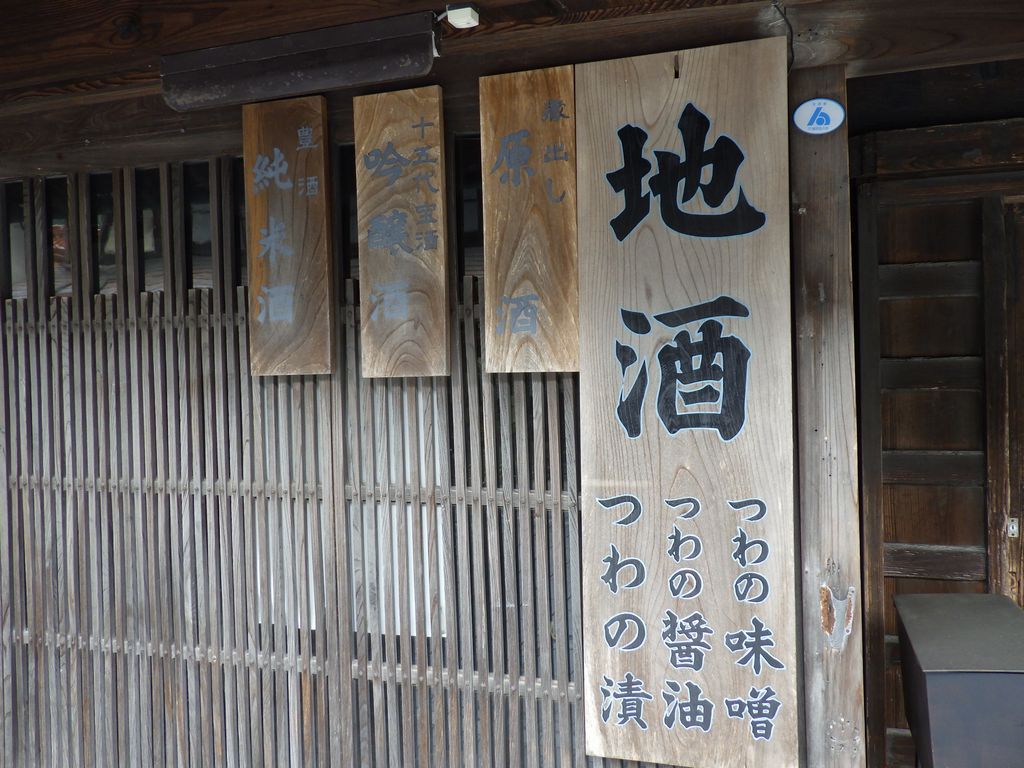 地酒
つわの味噌
つわの醤油
つわの漬
蔵出し
原酒
十五代宝酒
吟醸酒
豊酒
純米酒